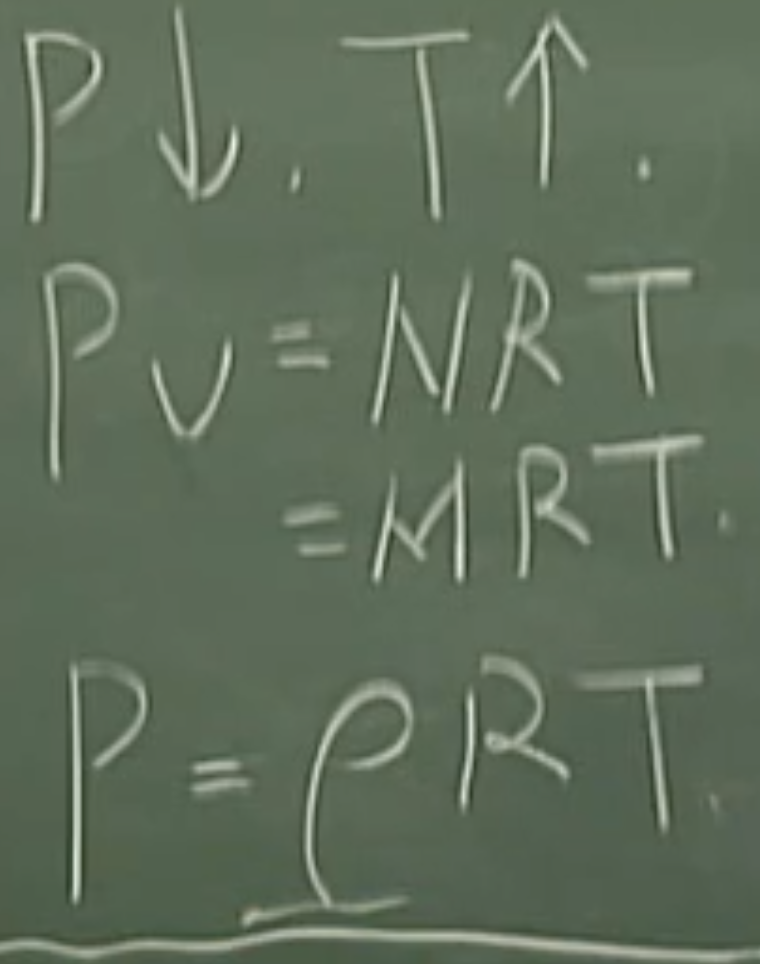 P↓. T↑.
PV=NRT
=MRT.
P=ρRT.